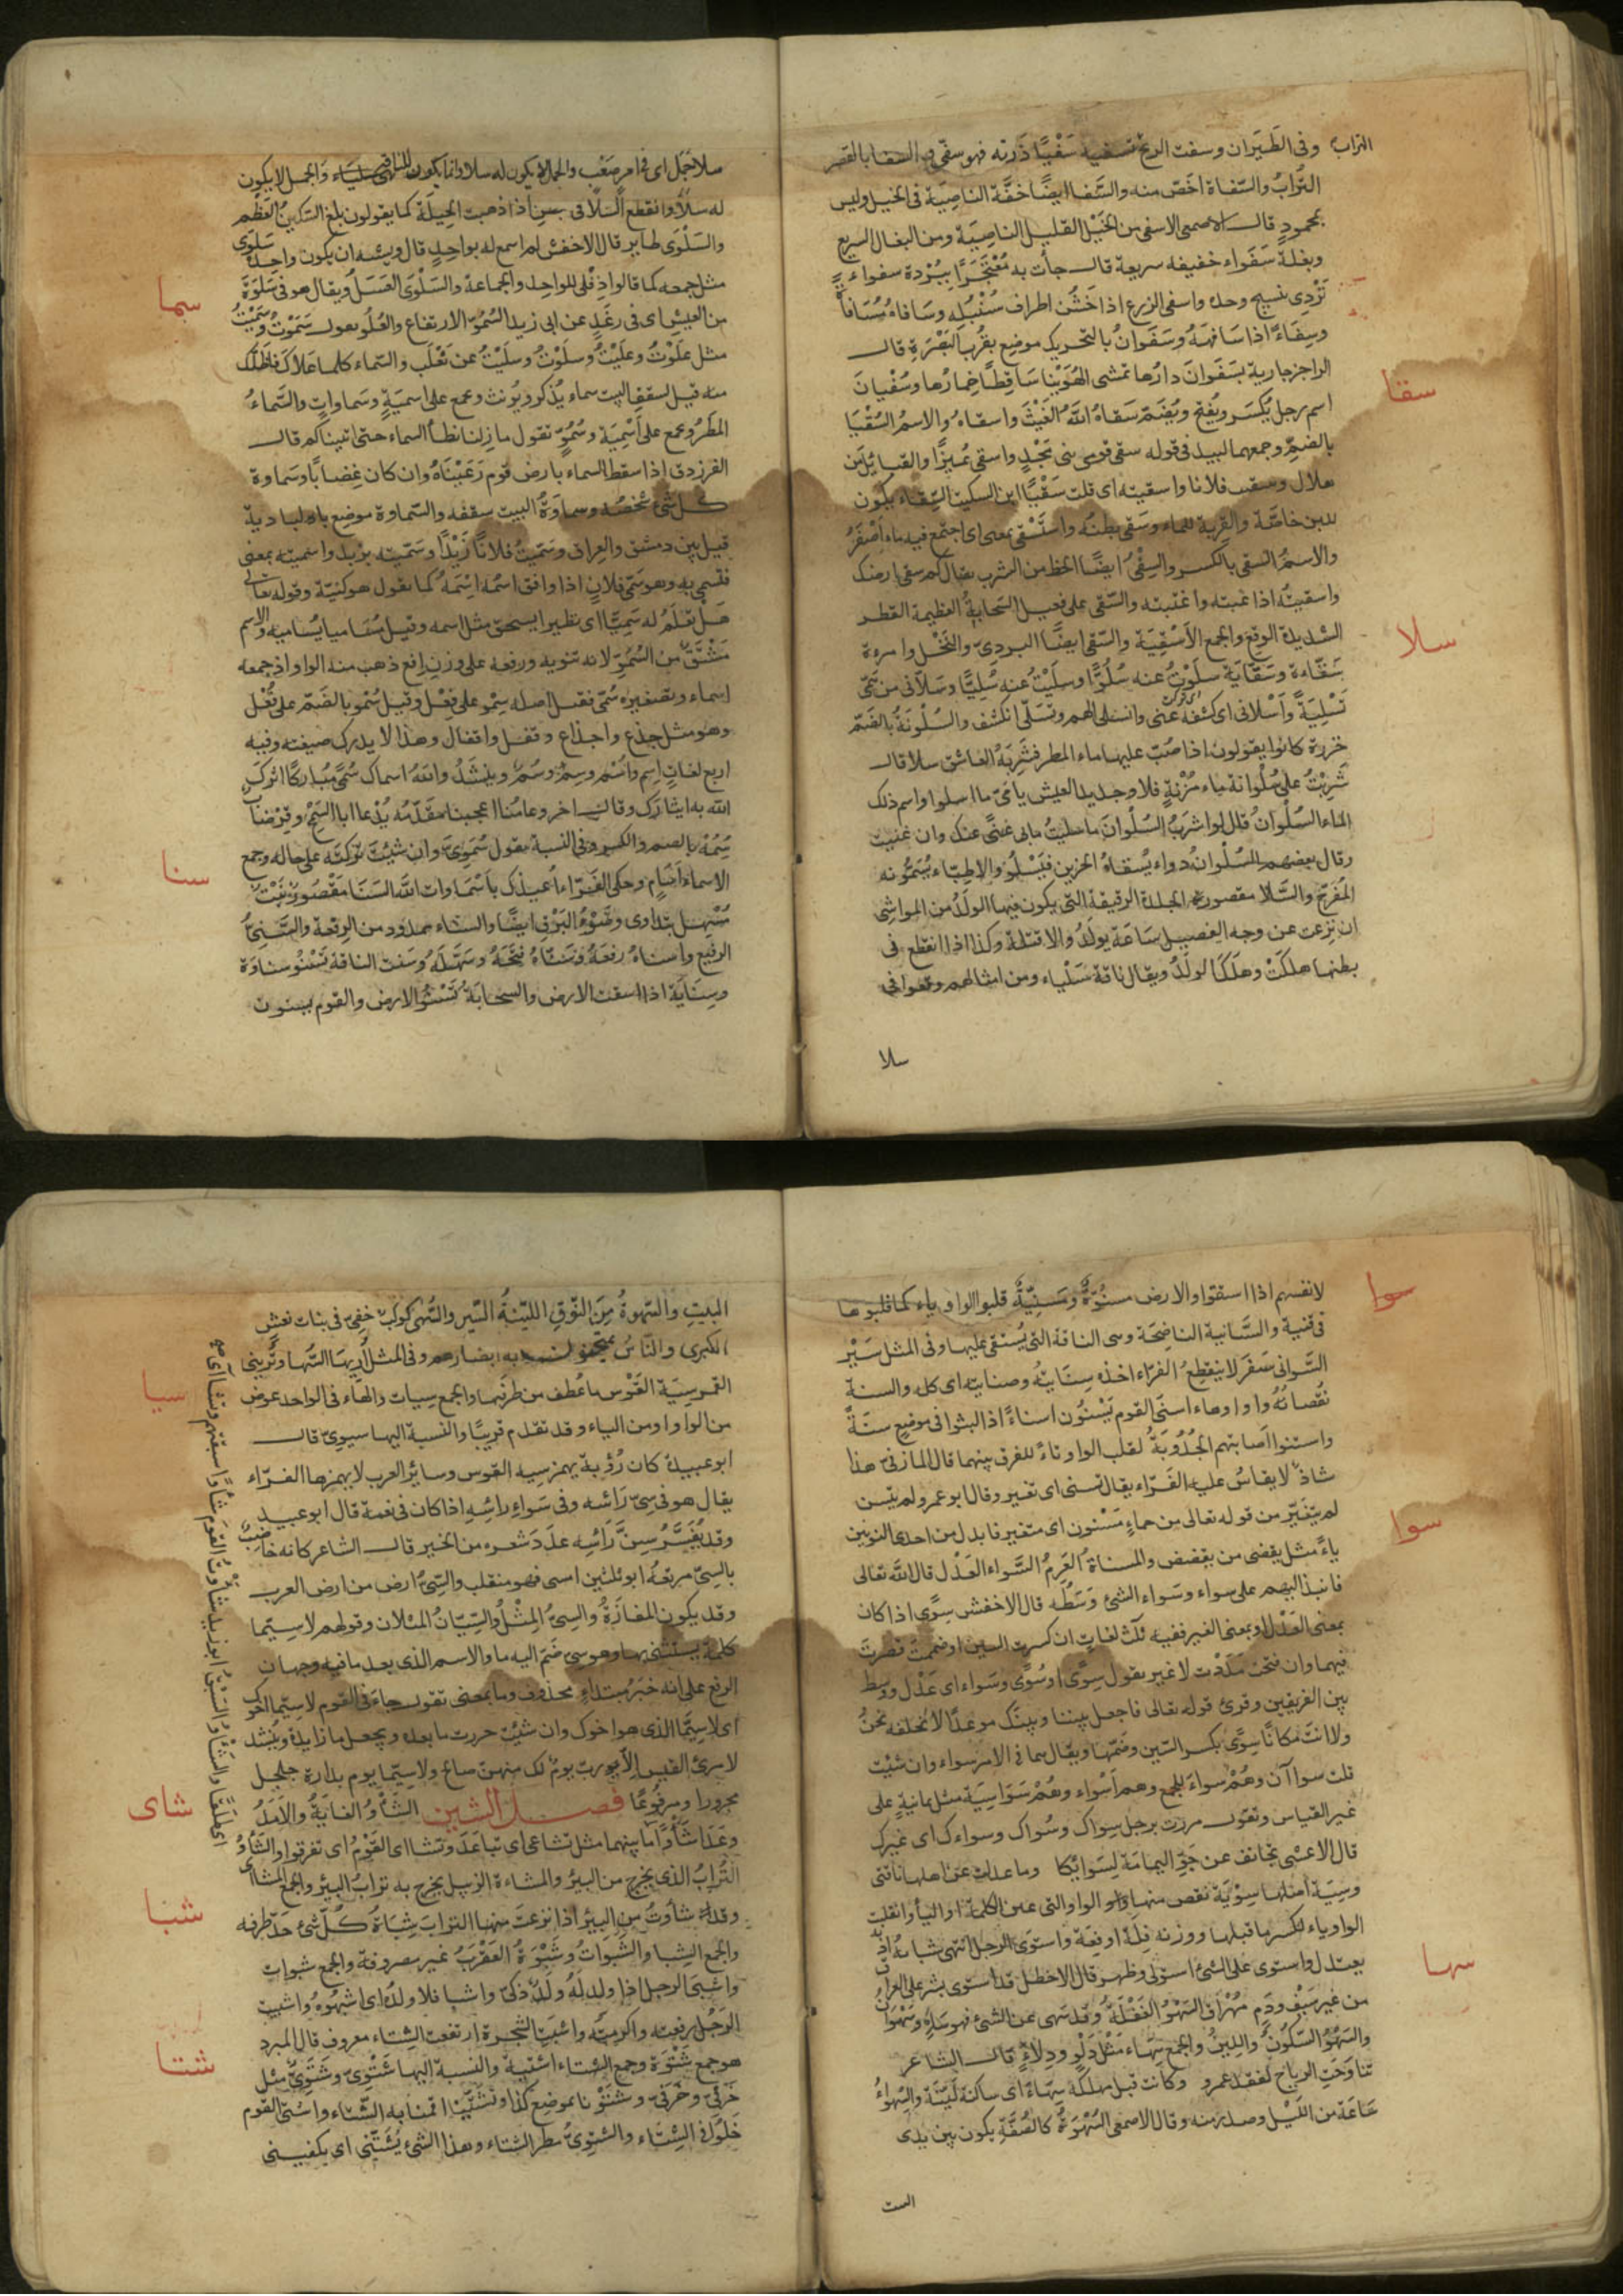 التراب وفى الطَيَران وسفت الريح تسفيه سَفْيًا ذَرته فهو سفىّ والسفا بالقصر
التُّرابُ والسّفاة اخَصّ منه والسَّفا ايضًا خفَّة الناصِيَة فى الخيل وليس
بمحمودٍ قال الاصمعى الاسفى من الخَيْل القليل الناصِيَة ومن البغال السريع
وبغلة سَفَواء خفيفه سريعة قال جأت به مُعْتَجَرًا ببُرْدة سفواء
تَرْدِى بنسيج وحده واسفى الزرع اذا خَشُن اطراف سُنْبُلِه وسَافاهُ مُسَافاةً
وسِفَاءً اذا سَافَهَهُ وسَفَوانُ بالتحريك موضع بقُرب البَصْرَةِ قال
الراجز جارية بسَفَوانَ دارُها تمشى الهُوَيْنا سَاقِطًا خِمارُها وسُفْيانَ
اسم رجل يُكسَر ويُفتح ويُضَمّ سَقاهُ اللّهُ الغَيْثَ واسقاهُ والاسمُ السُقْيَا
بالضمِّ وجمعهما لبيد فى قوله سقى قومى بنى مَجْدٍ واسقى نُمَيْرًا والقبايل من
هلال وسقيت فلانا واسقيته اى قلت سَقْيًا ابن السكيت السِّقاء يكون
للبن خاصَّة والقِربة للماء وسَقى بطنُه واستَسْقى بمعنى اى اجتمع فيه ماء اصْفَرُ
والاسمُ السقى بالكسر والسِقْىُ ايضًا الحظ من الشرب يقال كم سقى ارضك
واسقيتُه اذا عبته واغتبته والسَّقى على فعيل السَحابةُ العظيمة القطر
الشديدة الوقع والجمع الاَسْقِيَة والسّقى ايضًا البردىّ والنَخْل وامرءة
سَقّاءة وسَقّايَة سلَوْتُ عنه سُلُوًّا وسلَيْتُ عنه سُلِيًّا وسَلّانى من همّى
تَسْلِيَةً واَسْلانى اى كشفه عنّى وانسلى الهم وتسَلّى انكشف والسُلْوَنَةُ بالضمّ
خرزة كانوا يقولون اذا صُبّ عليها ماء المطر فشَرِبَهُ العاشق سلا قال
شَرِبْتُ على سُلْوانة ماء مُزْنةٍ فلا وجديد العيش يا مَىّ ما اسلوا واسم ذلك
الماء السُلْوانُ قال لو اشربُ السُلْوانَ ما سليتُ مابى غنًى عنك وان غنيت
وقال بعضهم السُلوانُ دواء يُسقاهُ الحزين فيَسْلُو والاطِبّاء يُسَمُّونه
المُفرِح والسَّلا مقصور الجلدة الرقيقة التى يكون فيها الولَدُ من المواشى
ان نزعت عن وجه الفصيل سَاعَة يولَدُ والا قتلته وكذا اذا انقطع فى
بطنها هلكَتْ وهلَكَ الولَدُ ويقال ناقة سَلْياء ومن امثالهم وقعوا فى
سلا
سقا
سلا
سلا جَمَل اى فى امرٍ صَعْب والجمل لا يكون له سلا وانما يكون للناقة والجمل لا يكون
له سلًا وانقطع السَلا فى بطن اذا ذهبت الحِيلَة كما يقولون بلغ السّكينُ العَظْم
والسَلْوَى طاير قال الاخفش لم اسمع له بواحدٍ قال ويشبه ان يكون واحدهُ سَلوَى
مثل جمعه كما قالوا دِفْلى للواحد والجماعة والسَلْوَى العَسَلُ ويقال هو فى سَلْوَةٍ
من العيش اى فى رغَدٍ عن ابى زيد السُمُوّ الارتفاع والعُلُو يقول سَمَوْتُ وسَمَيْتُ
مثل علَوْتُ وعلَيْتُ وسلَوْتُ وسلَيْتُ عن ثعْلَب والسّماء كلما علاكَ فاظلّك
منه قيل لسقفِ البيت سماء يُذكر ويُونث ويجمع على اسميَةٍ وسَماواتٍ والسَّماءُ
المَطَرُ ويجمع على اَسْمِيَة وسُمُوٍّ تقول ما زِلنا نطأُ السماء حتى اتيناكم قال
الفرزدق اذا سقط السماء بارض قوم رَعَيْنَاهُ وان كان غِضابًا وسَماوة
كل شىءٍ شخصُهُ وسماوَةُ البيت سقفه والسّماوة موضع بالبادية
قيل بين دمشق والعِراق وسَمّيتُ فلانًا زَيْدًا وسَمّيته بزيد واسميته بمعنى
فتسمى به وهو سَمّى فلانٍ اذا وافق اسمُه اسْمَهُ كما يقول هو كنيّة وقوله تعالى
هَل تعْلَمُ له سَمِيًّا اى نظيرا يستحق مثل اسمه وقيل مُسَاميا يُساميه والاسم
مشتَقّ من السُمُوّ لانه تنويه ورفعة على وزن افع ذهب منه الواو اذ جمعه
اسماء وتصغيره سُمَىّ فقيل اصله سِمْو على فِعْل وقيل سُمْو بالضمّ على فُعْل
وهو مثل جِذع واجذاع وقفل واقفال وهذا لا يدرك صيغته وفيه
اربع لغاتٍ اِسم واُسْم وسِمٌ وسُمٌ وينشَدُ والله اسماك سُمًى مُبارَكًا اثرك
الله به ايثارك وقال اخر وعامُنا اعجبنا مقَدّمُه يُدعا ابا السَمْحِ وقِرْضاب
سِمُهْ بالضم والكسر وفى النسبة يقول سُمَوِىّ وان شيت تركته على حاله وجمع
الاسماء اَسَامٍ وحكى الفرّاء اُعيذك باَسْماوات الله السَنَا مَقْصُور نبْتٌ
مُسْهل يتداوى وضَوْءُ البَرْق ايضًا والسناء ممدود من الرفعة والسَّنِىُّ
الرفيع واسناهُ رفعَهُ وسَنّاهُ فتَحَهُ وسَهّلَهُ وسَنت الناقة تَسْنُو سناوَة
وسِنايَة اذا سقت الارض والسحابَة تَسْنُو الارض والقوم يسنون
سما
سنا
لانفسهم اذا اسقوا والارض مسنُوّةٌ ومَسنِيّةٌ قلبوا الواو ياء كما قلبوها
فى قنية والسَّانية الناضِحَة وهى الناقة التى يُستقى عليها وفى المثل سَيْر
السَّوانى سَفَر لا ينقطِعُ الفرّاء اخذه بسِنَايتهُ وصنايته اى كله والسنة
نُقصانُهُ واو وهاء اسنى القوم يَسْنُون اسناءً اذا لبثوا فى موضعٍ سنَةً
واستنوا اَصابتهم الجُدُوبَةُ لقلب الواو تاءً للفرق بينهما قال المازنى هذا
شاذّ لا يقاسُ عليه الفَرّاء يقال تسنى اى تغير وقال ابو عمرو لم يتسن
لم يتَغَيّر من قوله تعالى من حماءٍ مَسْنون اى متغير فابدل من احدى النونين
ياءً مثل يقضى من يقضض والمسناةُ العَرِمُ السَّواء العَدْل قال اللّه تعالى
فانبذ اليهم على سواء وسَواء الشئ وَسَطُه قال الاخفش سِوًى اذا كان
بمعنى العَدْل او بمعنى الغير ففيه ثلث لغاتٍ ان كسرت السين او ضممت قصرت
فيهما وان فتحت مَدَدْت لا غير يقول سِوًى او سُوًى وسَواء اى عَدْل ووسط
بين الفريقين وقرئ قوله تعالى فاجعل بيننا وبينك موعدًا لا نخلفه نحنُ
ولا انتَ مَكانًا سِوًى بكسر السّين وضَمّها ويقال هما فى الامر سواء وان شئت
قلت سواآن وهُمْ سواءٌ للجمع وهم اَسْواء وهُمْ سَوَاسِيَة مثل يمانيَةٍ على
غير القياس وتقول مررت برجل سِواك وسُواك وسواءك اى غيرك
قال الاعشى تجانف عن جَوّ اليمامَة ناقتى وما عدلت عن اهلها لِسَوائِكا
وسِيَة اصلها سِوْيَة نقص منها واو الواو التى عين الكلمة او اليأ وانقلبت
الواو ياء لكسر ما قبلها ووزنه فِلَة او فِعَة واستوى الرجل انتهى شبابُه اذا
يعتدل واستوى على الشئ استولى وظهر قال الاخطل قد استوى بشر على العراق
من غير سَيْف ودَمٍ مُهْرَاق السَهْو الغفْلَةُ وقد سَهى عن الشئ فهو سَاهٍ وسَهْوانٌ
والسَهْوُ السّكُونُ واللينُ والجمع سِهَاء مثل دَلْو ودِلاءٍ قال الشاعر
تناوَحَتِ الرياح لفقد عمرو وكانت قبل مهلكَه سِهَاءً اى ساكنة لَيّنَة والسِّهواءُ
سَاعَة من اللَيْل وصدر منه وقال الاصمعى السَهْوَةُ كالصُفّة يكون بين يدى
البيت
سوا
سوا
سها
البيتِ والسَهوةُ مِنَ النّوقِ الليّنةُ السَّير والسُّهى كوكَبٌ خفِىّ فى بنات نعش
الكبرى والنّاسُ يمتحنون به ابصارهم وفى المثل اُرِيهَا السُّهَا وتُرِينى
القمر سِيَة القَوْسِ ما عُطف من طرفَيها والجمع سِيات والهاء فى الواحد عوض
من الواو او من الياء وقد تقدم قريبًا والنسبة اليها سيوىّ قال
ابو عبيدة كان رُؤْبة يهمز سِيه القوس وساير العرب لا يهمزها الفرّاء
يقال هو فى سِىّ رَاسِه وفى سَواءِ رَاسِه اذا كان فى نعمة قال ابو عبيد
وقد يُفَسَّرُ سِىَّ رَأسِه عدَدَ شعره من الخير قال الشاعر كانه خاضبٌ
بالسِىّ مرتعُه ابو ثلثين امسى فهو منقلب والسِّىُّ ارض من ارض العرب
وقد يكون المفازَةُ والسِىُّ المِثْلُ والسِّيّانُ المثلان وقولهم لاسِيّما
كلمة يُستثنى بها وهو سىّ ضمّ اليه ما والاسم الذى بعد ما فيه وجهان
الرفع على انه خبَرُ مبتداءٍ محذوف وما بمعنى تقول جاءَنى القوم لاسِيّما اخوك
اى لاسِيّما الذى هو اخوك وان شئت جررت ما بعده ويجعل ما زايدة وينشد
لامرئ القيس الا رب يومٌ لك منهن صالح ولاسِيّما يوم بدارة جلجل
مجرورا ومرفوعًا فصل الشين الشَأوُ الغايَةُ والاَمَدُ
وعَدَا شَأوًا ما بينهما مثل تشاعى اى تباعَدَ وتشااى القَوْمُ اى تفرقوا والشَأوُ
التُرابُ الذى يخرج من البئرِ والمشاءة الزبيل يخرج به ترابُ البئر والجمع المشااى
وقد شأوتُ من البير اذا نزعتَ منها الترابَ شَبَاةُ كُل شىءٍ حَدّ طرفه
والجمع الشبا والشَبواتُ وشَبْوَةُ العَقْربُ غير مصروفة والجمع شبوات
واشبَى الرجل اذا ولد لَهُ ولَدٌ ذكىّ واشبا فلانا ولدُهُ اى اشبَهُوهُ واشبيت
الرَجُلَ رفعته واكرمتَه واشبَتِ الشجرة ارتفعت الشِتاء معروف قال المبرد
هو جمع شَتْوَة وجمع الشتاء اشتية والنسبة اليها شَتْوِىّ وشَتَوِىّ مثل
خَرْفى وخَرَفىّ وشتَوْنا بموضع كذا وتشَتّينا اقمنا به الشتاء واشتى القوم
دَخلوا فى الشِتاء والشتوىُّ مطر الشتاء وهذا الشئ يُشَتِّينى اى يكفينى
سيا
شاى
شبا
شتا